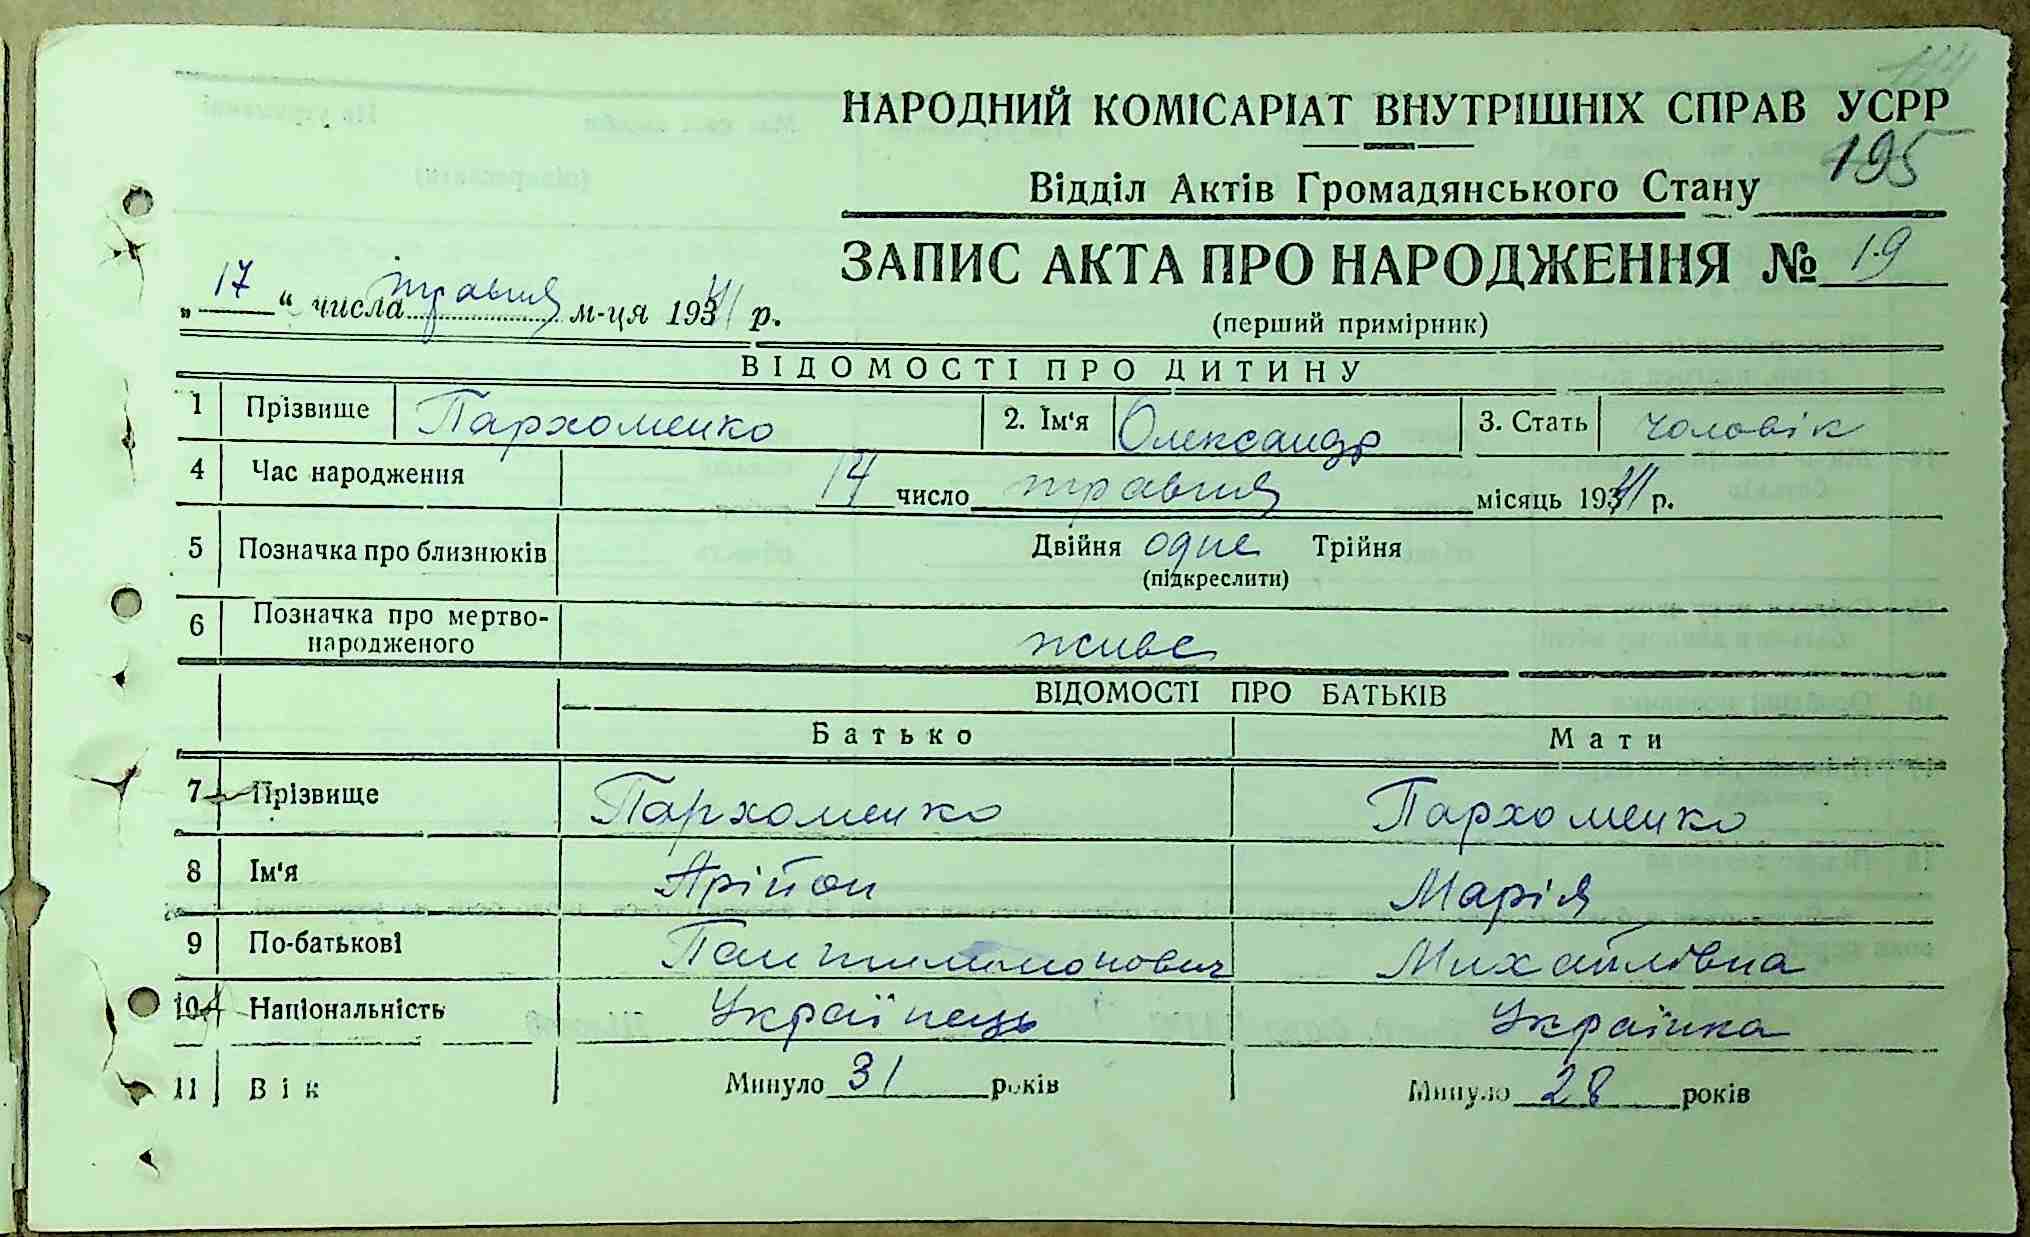 144
НАРОДНИЙ КОМІСАРІАТ ВНУТРІШНІХ СПРАВ УСРР
195
Відділ Актів Громадянського Стану
ЗАПИС АКТА ПРО НАРОДЖЕННЯ № 19
„ 17 “ числа травня м-ця 1941 р.
(перший примірник)
ВІДОМОСТІ ПРО ДИТИНУ
1 Прізвище Пархоменко 2. Ім'я Олександр 3. Стать чоловік
4 Час народження 14 число травня місяць 1941 р.
5 Позначка про близнюків Двійня одне Трійня
(підкреслити)
6 Позначка про мертво-
народженого живе
ВІДОМОСТІ ПРО БАТЬКІВ
Батько Мати
7 Прізвище Пархоменко Пархоменко
8 Ім'я Арійон Марія
9 По-батькові Михайлівна
10 Національність Українець Українка
11 Вік Минуло 31 років Минуло 28 років